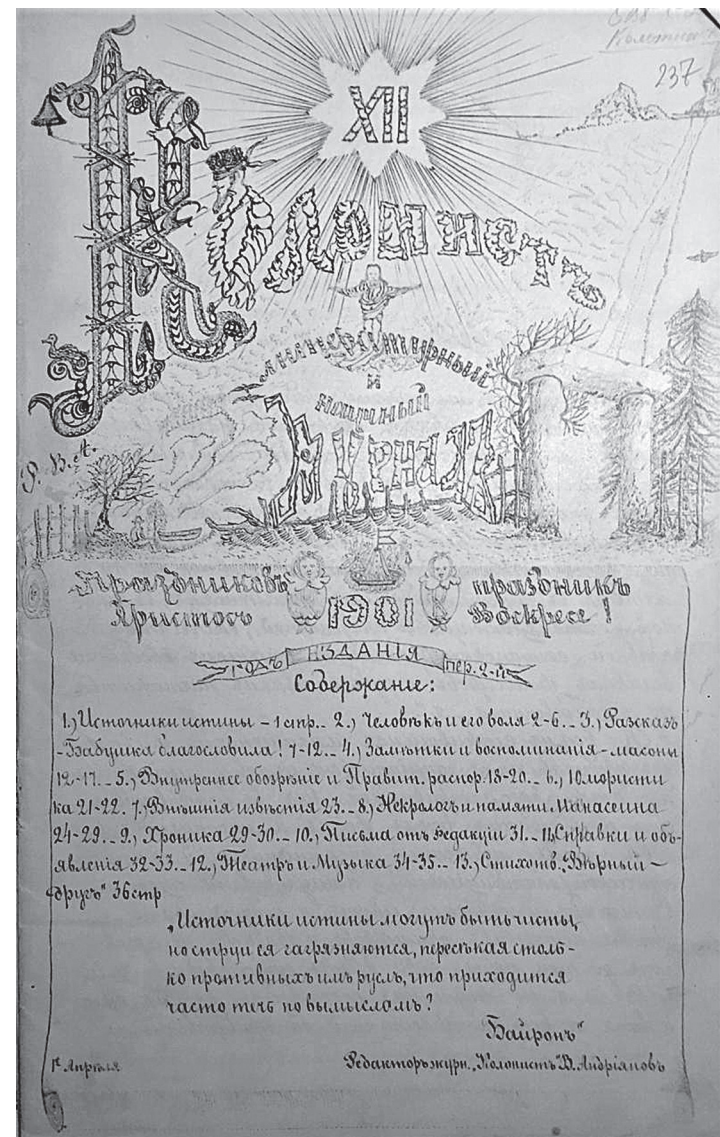 Колонист
237
XII
Колонистъ
Литературный
и
научный
Журналъ
Р. В. А.
Праздниковъ праздникъ
Христосъ 1901 Воскресе!
годъ ИЗДАНІЯ пер. 2-й
Содержаніе:
1.) Источники истины – 1 стр.. 2.) Человѣкъ и его воля 2-6.. 3.) Разсказъ
-Бабушка благословила! 7-12.. 4.) Замѣтки и воспоминанія – масоны
12-17.. 5.) Внутреннее обозрѣніе и Правит. распор. 18-20.. 6.) Юмористи
ка 21-22. 7.) Внѣшнія извѣстія 23.. 8.) Некрологъ и памяти Манасеина
24-29.. 9.) Хроника 29-30.. 10.) Письма отъ редакціи 31.. 11.) Справки и объ-
явленія 32-33.. 12.) Театръ и Музыка 34-35.. 13.) Стихотв. „Вѣрный –
другъ" 36 стр
„Источники истины могутъ быть чисты,
но струи ея загрязняются, пересѣкая столь-
ко противныхъ имъ руслъ, что приходится
часто течь по вымысламъ?
Байронъ"
1го Апрѣля Редакторъ журн. „Колонистъ" В. Андріановъ